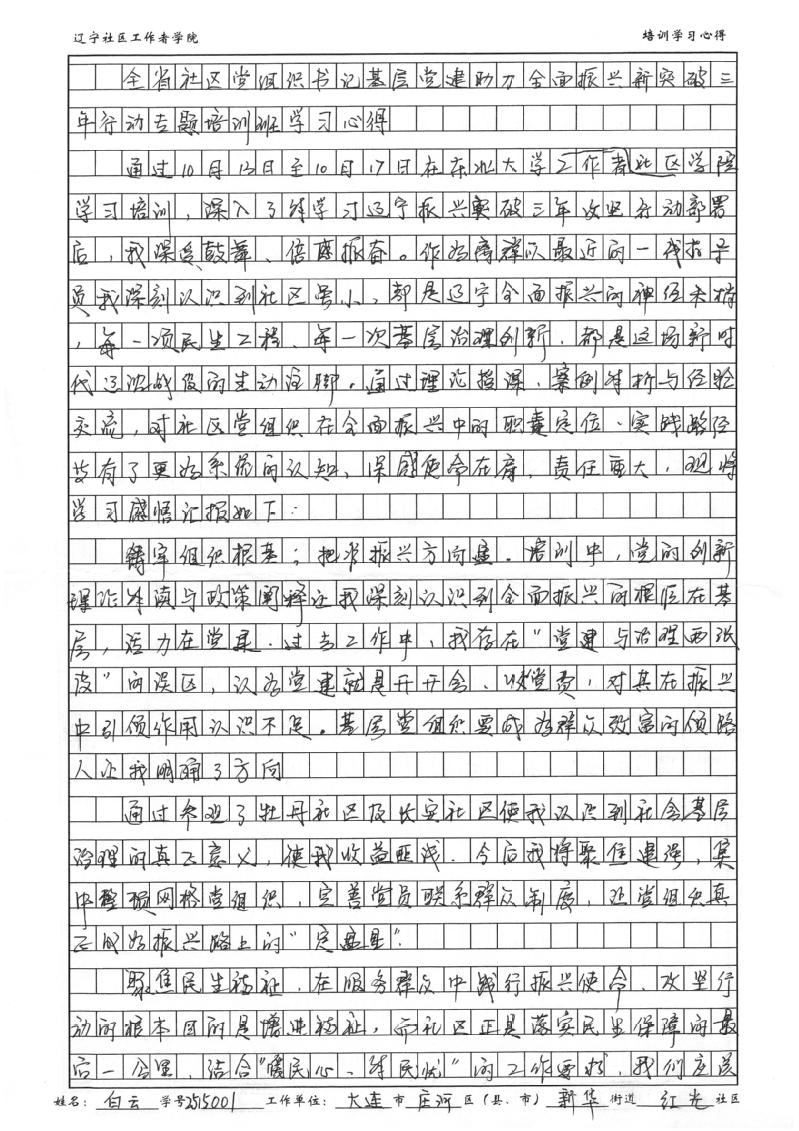 辽宁社区工作者学院 培训学习心得
全省社区党组织书记基层党建助力全面振兴新突破三
年行动专题培训班学习心得
通过10月13日至10月17日在东北大学工作者社区学院
学习培训,深入了解学习辽宁振兴突破三年攻坚行动部署
后,我深受鼓舞、倍感振奋。作为离群众最近的一线指导
员我深刻认识到社区虽小,却是辽宁全面振兴的神经末梢
,每一项民生工程、每一次基层治理创新,都是这场新时
代辽沈战役的生动注脚。通过理论授课、案例剖析与经验
交流,对社区党组织在全面振兴中的职责定位、实践路径
等有了更为系统的认知,深感使命在肩,责任重大,现将
学习感悟汇报如下:
铸牢组织根基;把准振兴方向盘。培训中,党的创新
理论解读与政策阐释让我深刻认识到全面振兴的根源在基
层,活力在党建.过去工作中,我存在"党建与治理两张
皮"的误区,认为党建就是开开会、收党费,对其在振兴
中引领作用认识不足。基层党组织要成为群众致富的领路
人让我明确了方向
通过参观了牡丹社区及长安社区使我认识到社会基层
治理的真正意义,使我收益匪浅.今后我将聚焦建强,集
中整顿网格党组织,完善党员联系群众制度,让党组织真
正成为振兴路上的"定盘星".
聚焦民生福祉,在服务群众中践行振兴使命.攻坚行
动的根本目的是增进福祉,而社区正是落实民生保障的最
后一公里,结合"暖民心、纾民忧"的工作要求,我们应该
姓名:白云 学号2515001 工作单位:大连市庄河区(县、市)新华街道红光社区